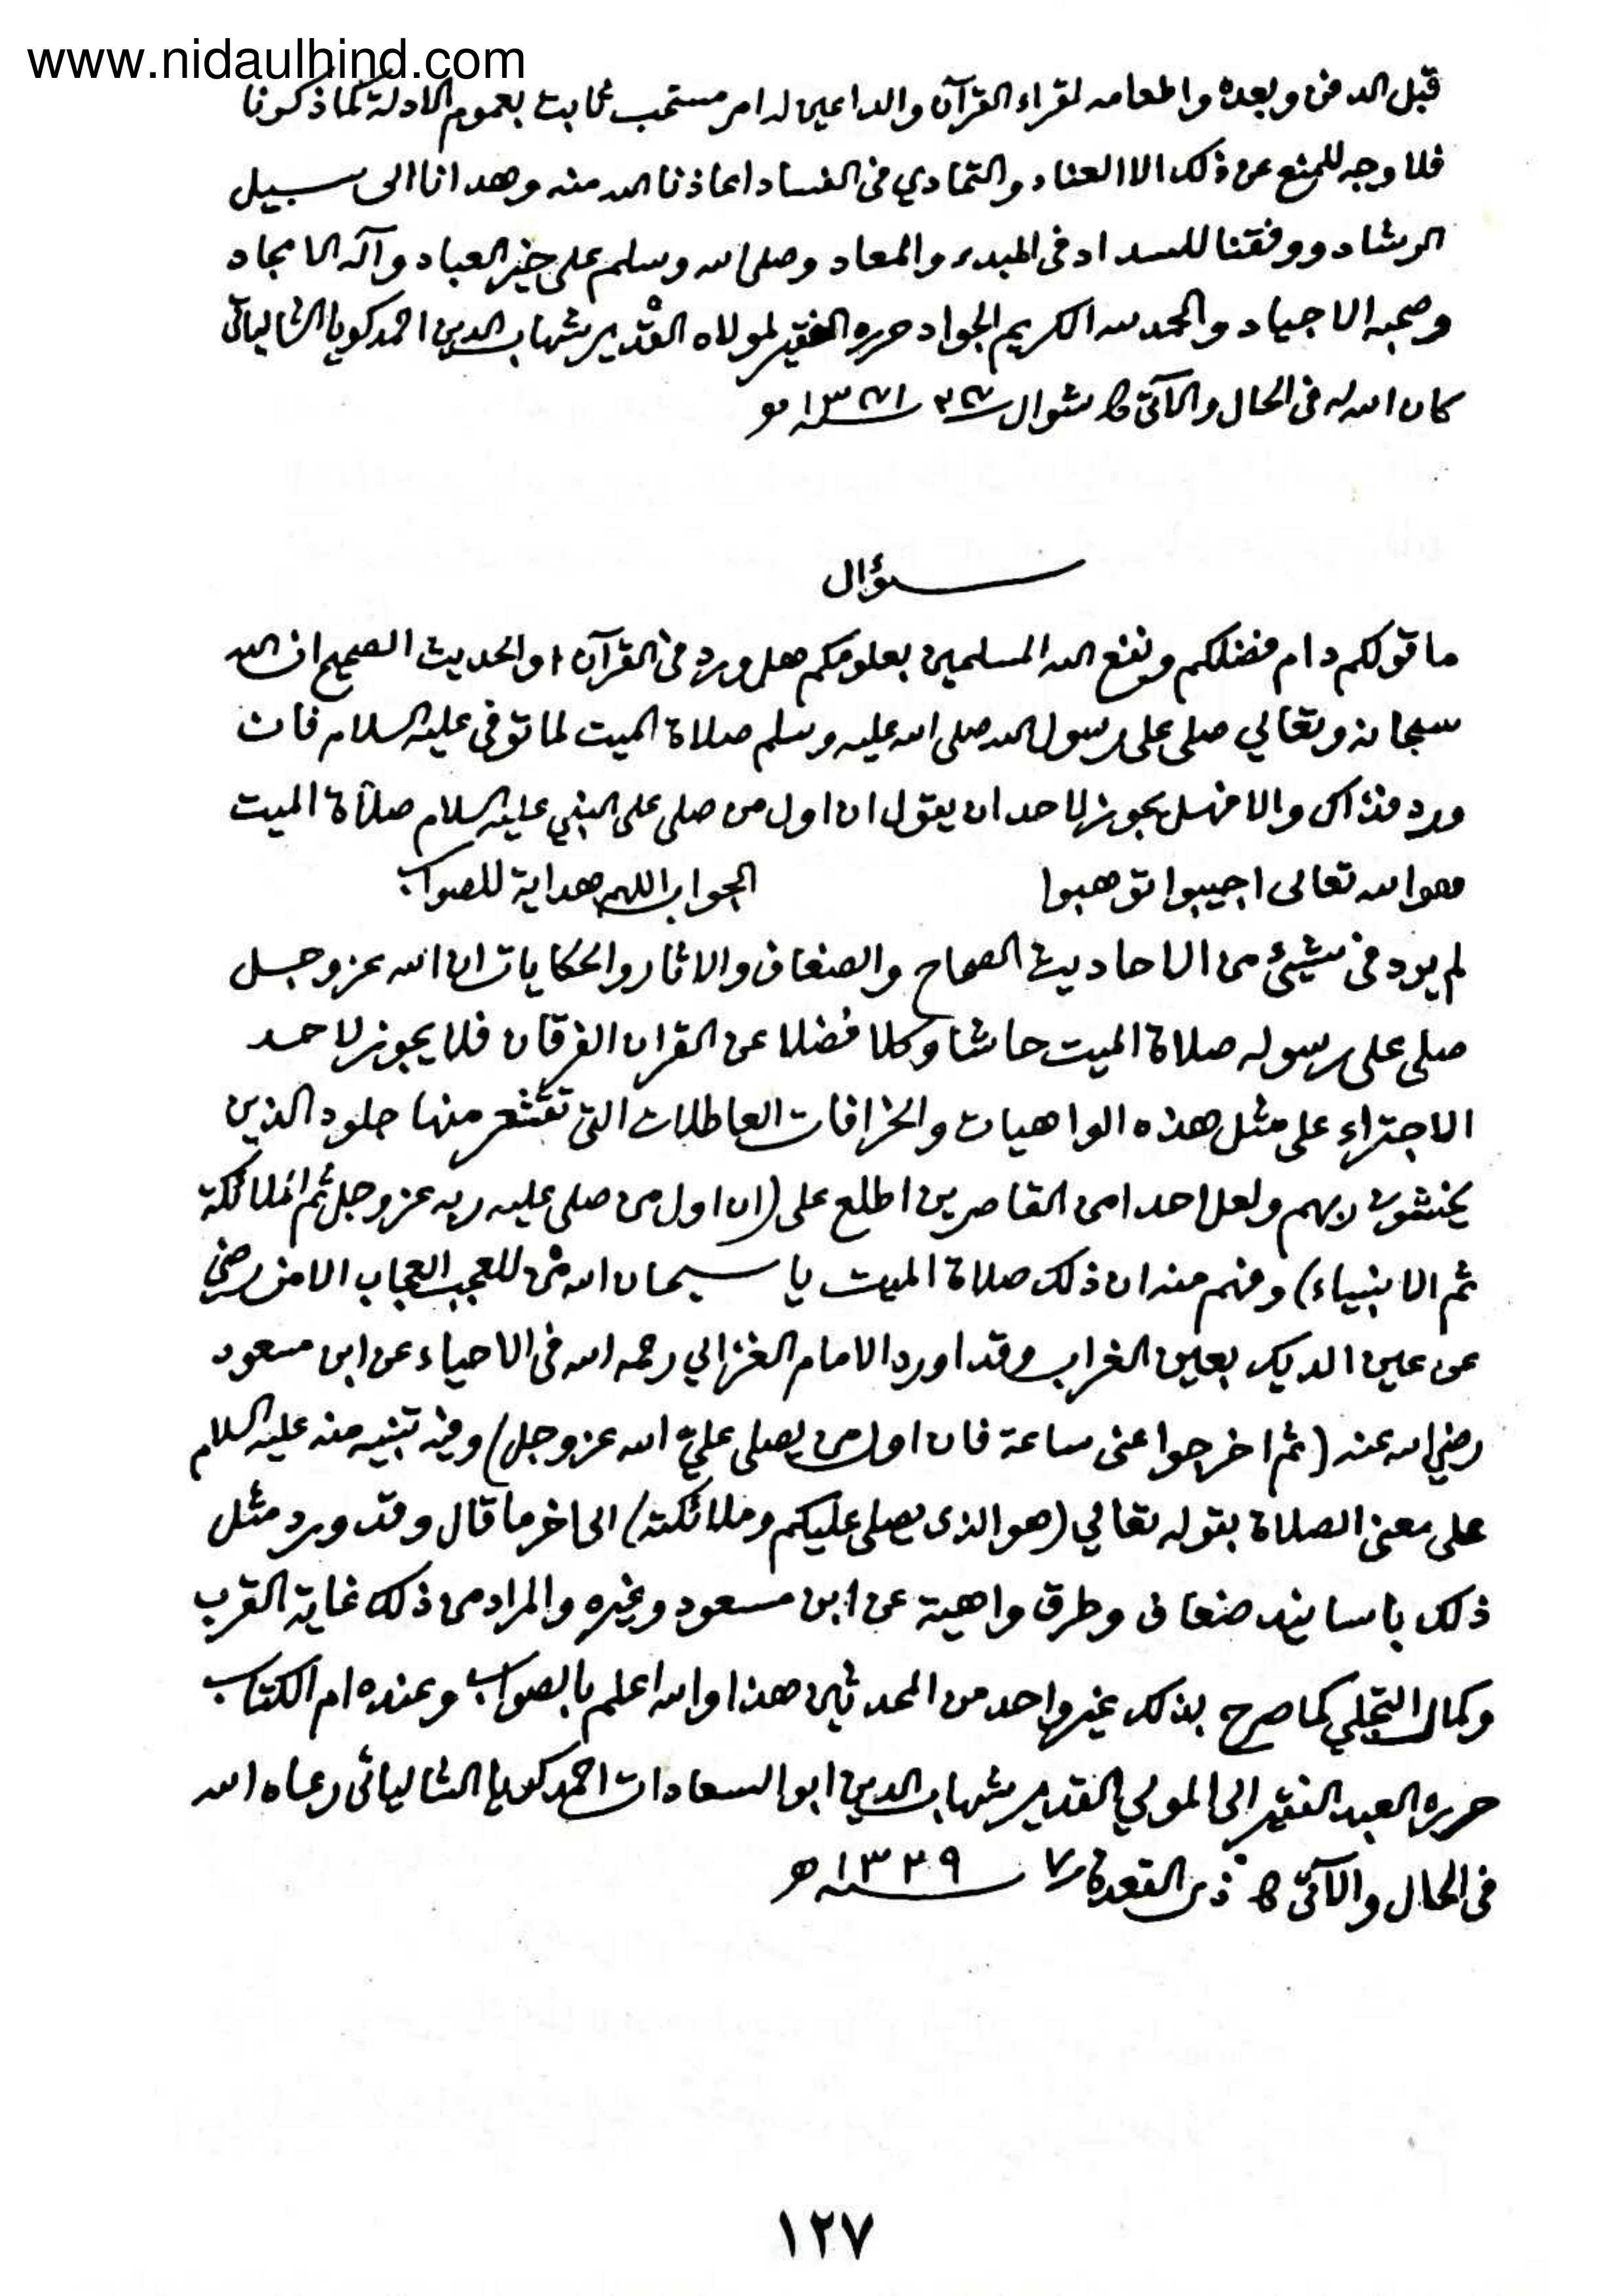 www.nidaulhind.com
قبل الدفن وبعده واطعامه لقراء القرآن والداعين له امر مستحب ثابت بعموم الادلة كما ذكرنا
فلا وجه للمنع عن ذلك الا العناد والتمادي فى الفساد اعاذنا الله منه وهدانا الى سبيل
الرشاد ووفقنا للسداد فى المبدء والمعاد وصلى الله وسلم على خير العباد وآله الامجاد
وصحبه الاجياد والحمد لله الكريم الجواد حرره الفقير لمولاه القدير شهاب الدين احمد كويا الشالياتى
كان الله له فى الحال والآتى شوال
سؤال
ما قولكم دام فضلكم ونفع الله المسلمين بعلومكم هل ورد فى القرآن او الحديث الصحيح ان الله
سبحانه وتعالي صلى على رسول الله صلى الله عليه وسلم صلاة الميت لما توفى عليه السلام فان
ورد فذاك والا فهل يجوز لاحد ان يقول ان اول من صلى على النبي عليه السلام صلاة الميت
هو الله تعالى اجيبوا توهبوا الجواب اللهم هداية للصواب
لم يرد فى شيئ من الاحاديث الصحاح والضعاف والاثار والحكايات ان الله عز وجل
صلى على رسوله صلاة الميت حاشا وكلا فضلا عن القران الفرقان فلا يجوز لاحد
الاجتراء على مثل هذه الواهيات والخرافات العاطلات التى تقشعر منها جلود الذين
يخشون ربهم ولعل احدا من القاصرين اطلع على (ان اول من صلى عليه ربه عز وجل ثم الملائكة
ثم الانبياء) وفهم منه ان ذلك صلاة الميت يا سبحان الله من للعجب العجاب الا من رضى
عن عين الديك بعين الغراب وقد اورد الامام الغزالي رحمه الله فى الاحياء عن ابن مسعود
رضي الله عنه (ثم اخرجوا عنى ساعة فان اول من يصلى عليّ الله عز وجل) وفيه تنبيه منه عليه السلام
على معنى الصلاة بقوله تعالي (هو الذى يصلى عليكم وملائكته) الى اخر ما قال وقد ورد مثل
ذلك باسانيد ضعاف وطرق واهية عن ابن مسعود وغيره والمراد من ذلك غاية القرب
وكمال التجلي كما صرح بذلك غير واحد من المحدثين هذا والله اعلم بالصواب وعنده ام الكتاب
حرره العبد الفقير الى المولي القدير شهاب الدين ابو السعادات احمد كويا الشالياتى رعاه الله
فى الحال والآتى ذى القعدة ٧ سنة ١٣٣٩ هـ
١٢٧